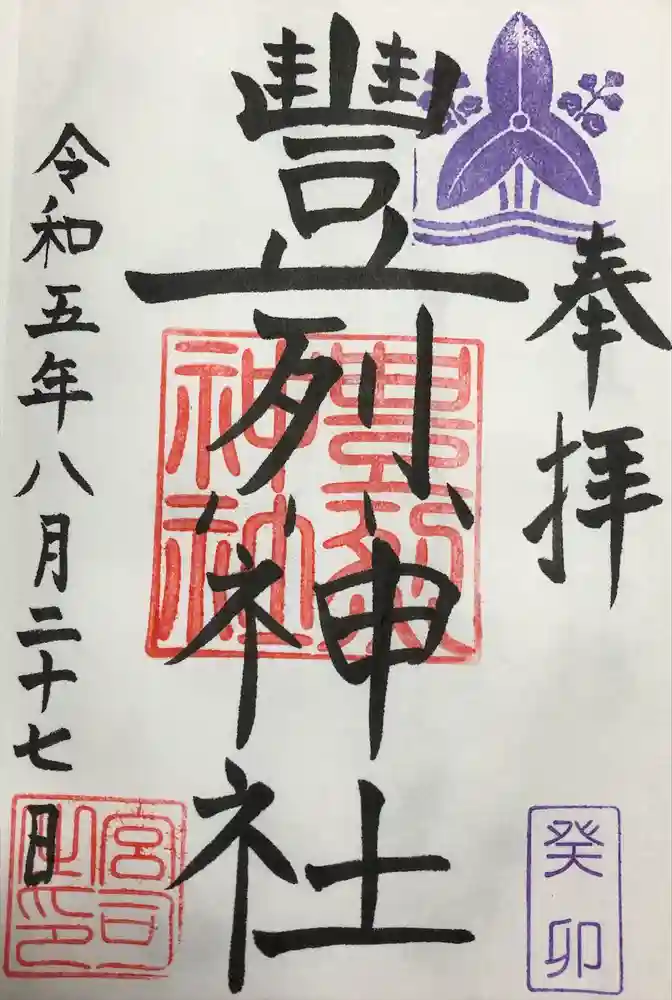 奉拝
豊烈神社
令和五年八月二十七日
癸卯
豊烈神社
宮司之印